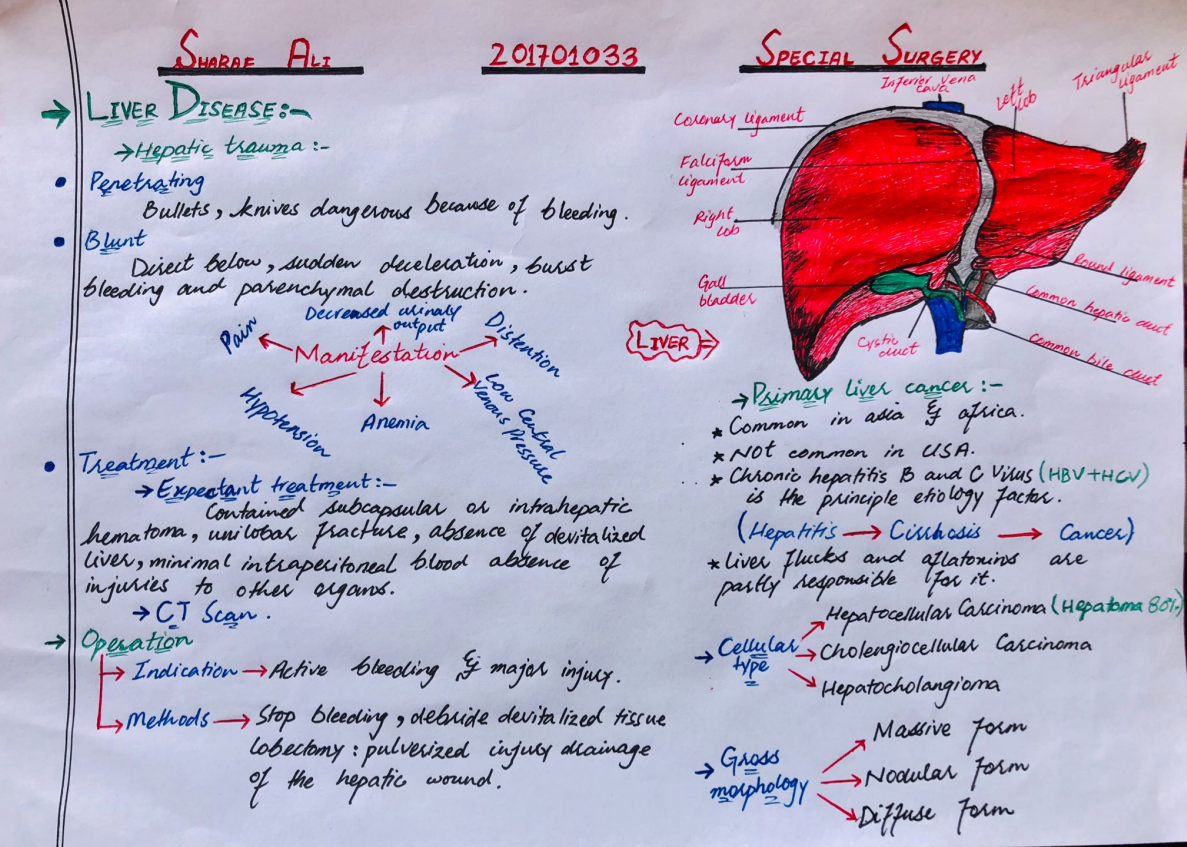 SHARAF ALI
201701033
SPECIAL SURGERY
→ LIVER DISEASE:-
→ Hepatic trauma :-
• Penetrating
Bullets, knives dangerous because of bleeding.
• Blunt
Direct below, sudden deceleration, burst
bleeding and parenchymal destruction.
Decreased urinary
output
Pain
Distention
Manifestation
Hypotension
Anemia
Low Central
Venous Pressure
• Treatment :-
→ Expectant treatment :-
Contained subcapsular or intrahepatic
hematoma, unilobar fracture, absence of devitalized
liver, minimal intraperitoneal blood absence of
injuries to other organs.
→ CT Scan .
→ Operation
Indication → Active bleeding & major injury.
Methods → Stop bleeding, debride devitalized tissue
lobectomy : pulverized injury drainage
of the hepatic wound.
Inferior vena
cava
Left
lob
Triangular
ligament
Coronary ligament
Falciform
ligament
Right
lob
Gall
bladder
Round ligament
Common hepatic duct
Cystic
duct
Common bile duct
LIVER ⇒
→ Primary liver cancer :-
* Common in asia & africa.
* NOT common in USA.
* Chronic hepatitis B and C Virus (HBV+HCV)
is the principle etiology factor.
(Hepatitis → Cirrhosis → Cancer)
* Liver flucks and aflatoxins are
partly responsible for it.
→ Cellular
type
→ Hepatocellular Carcinoma (Hepatoma 80%)
→ Cholengiocellular Carcinoma
→ Hepatocholangioma
→ Gross
morphology
→ Massive form
→ Nodular form
→ Diffuse form